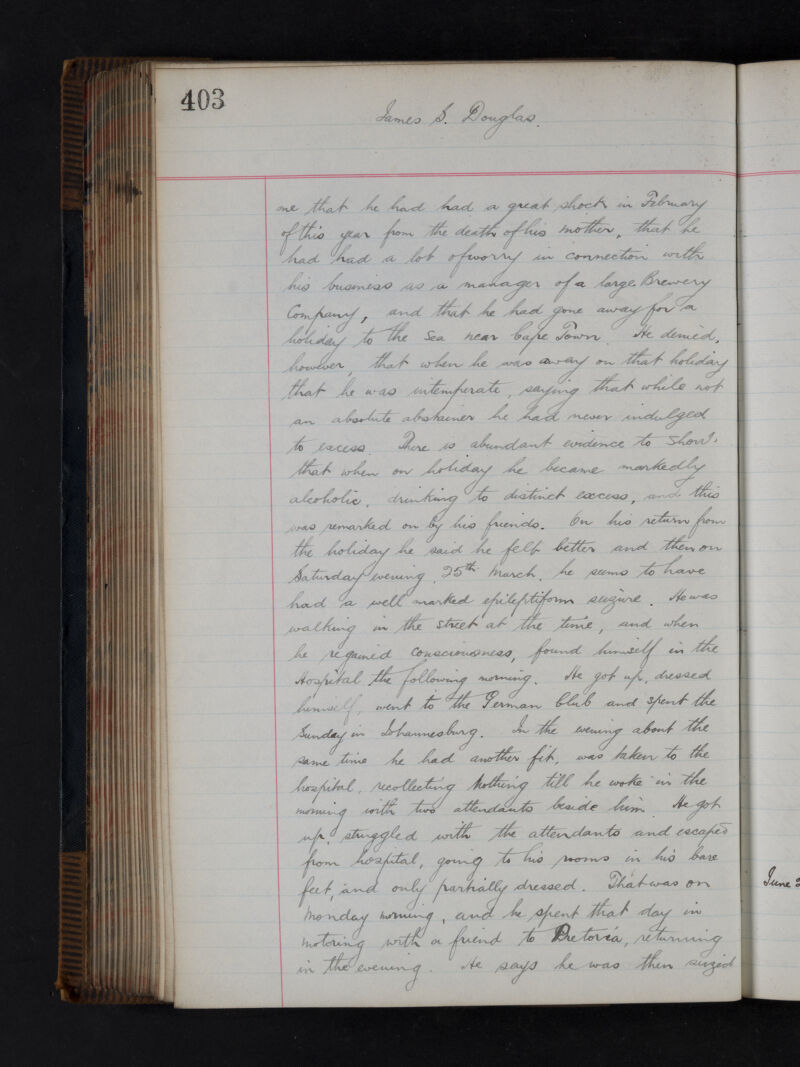 403
James S. Douglas.
me that he had had a great shock in February
of this year from the death of his mother, that he
had had a lot of worry in connection with
his business as a manager of a large Brewery
Company, and that he had gone away for a
holiday to the Sea near Cape Town. He denied,
however, that when he was away on that holiday
that he was intemperate, saying that while not
an absolute abstainer he had never indulged
to excess. There is abundant evidence to show
that when on holiday he became markedly
alcoholic, drinking to distinct excess, and this
was remarked on by his friends. On his return from
the holiday he said he felt better and then on
Saturday evening, 25th March, he seems to have
had a well marked epileptiform seizure. He was
walking in the street at the time, and when
he regained consciousness, found himself in the
Hospital the following morning. He got up, dressed
himself, went to the German Club and spent the
Sunday in Johannesburg. In the evening about the
same time he had another fit, was taken to the
hospital, recollecting nothing till he woke in the
morning with two attendants beside him. He got
up, struggled with the attendants and escaped
from hospital, going to his rooms in his bare
feet, and only partially dressed. That was on
Monday morning, and he spent that day in
motoring with a friend to Pretoria, returning
in the evening. He says he was then seized
June 2